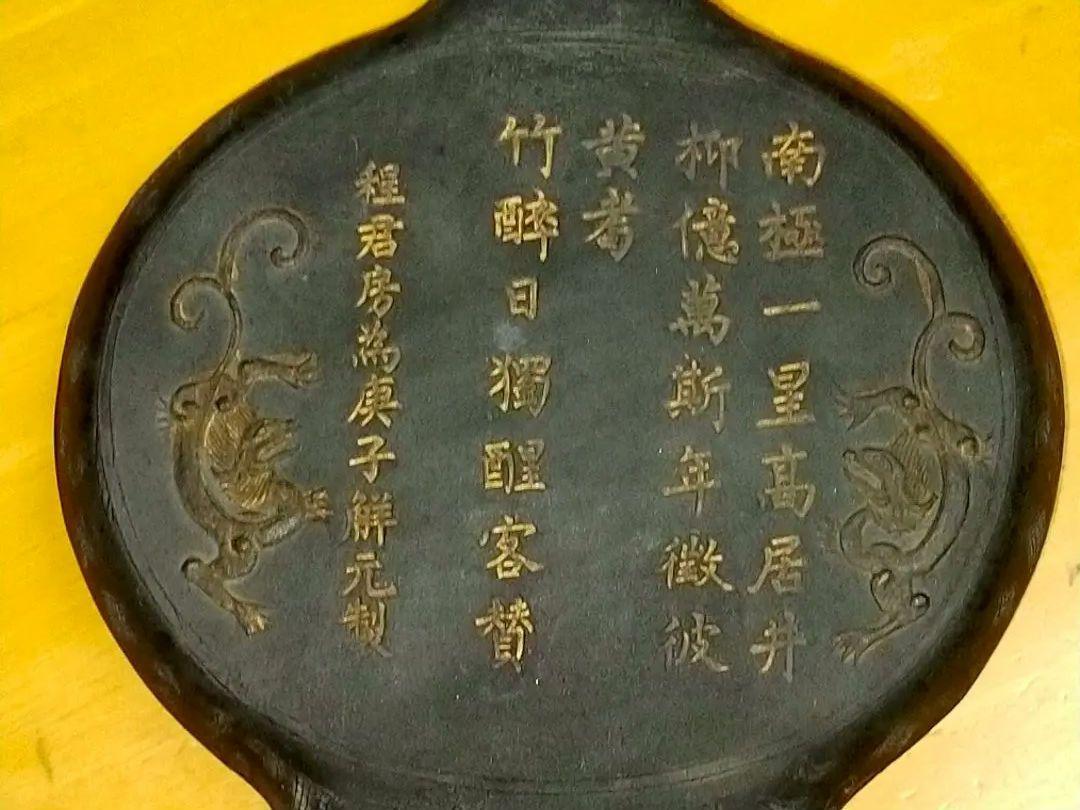 南極一星高居井
柳億萬斯年徵彼
黄耇
竹醉日獨醒客贊
程君房為庚子解元製